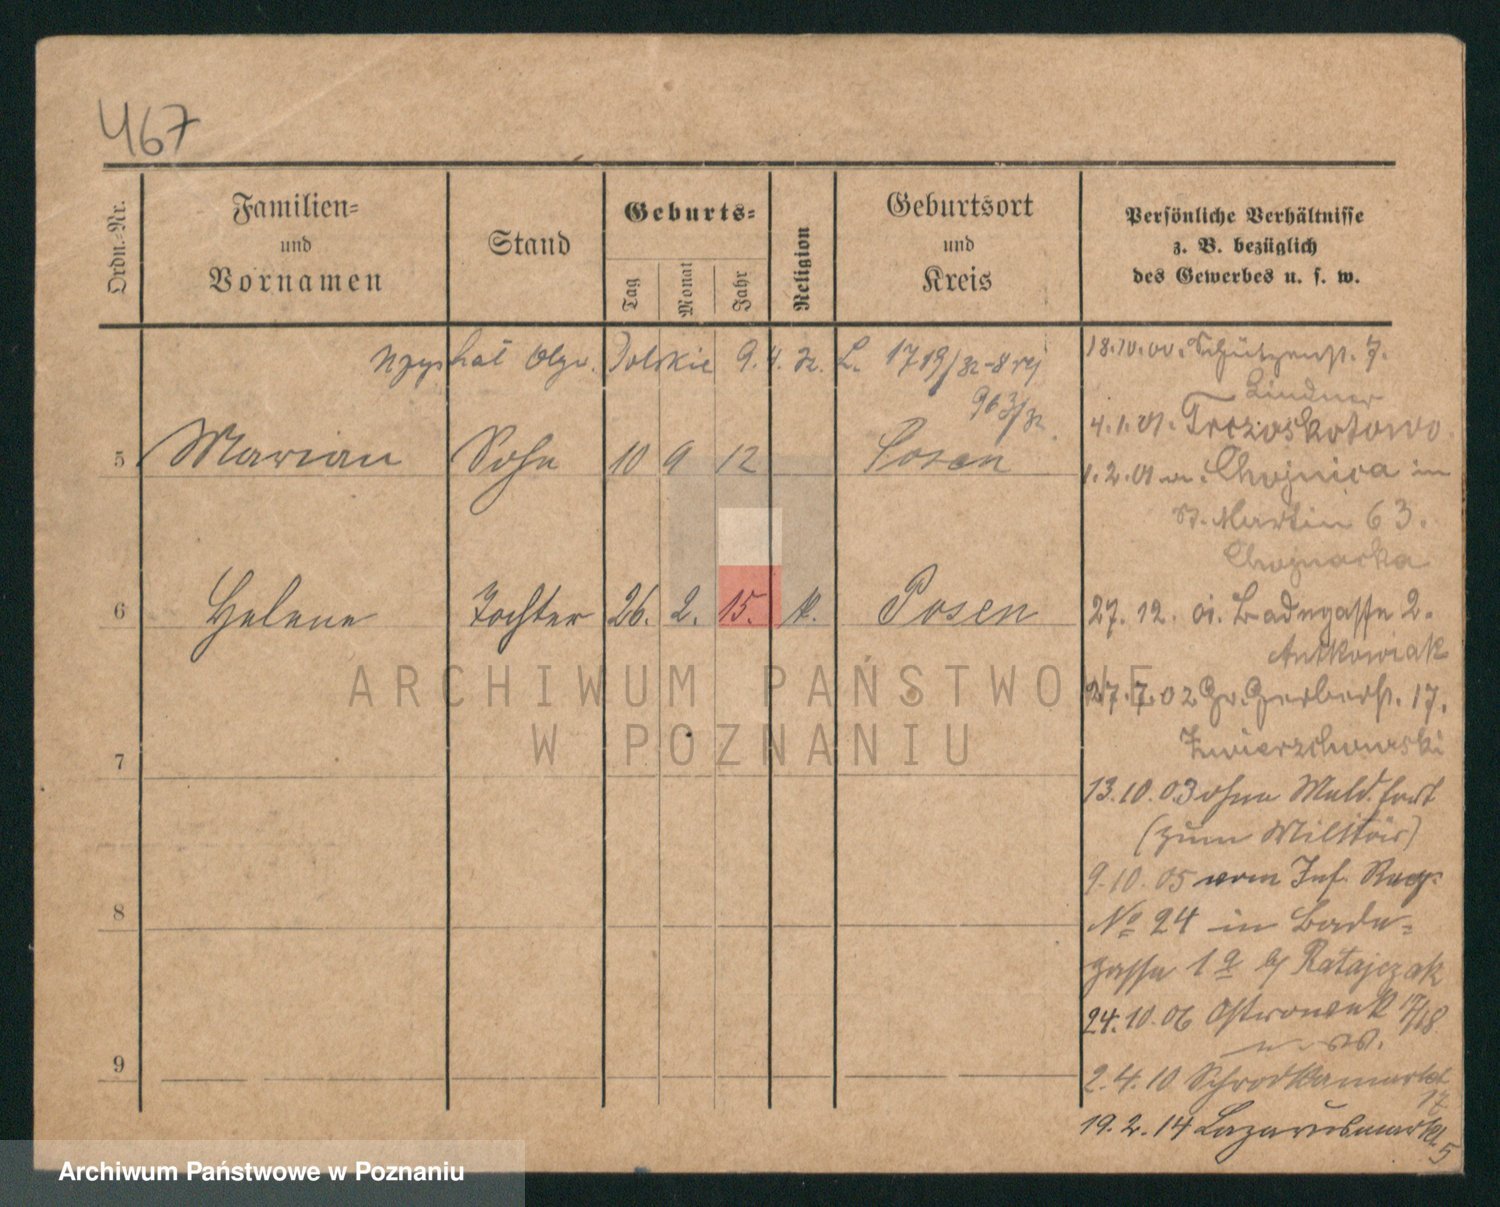 467
Ordn.-Nr.
Familien-
und
Vornamen
Stand
Geburts-
Tag
Monat
Jahr
Religion
Geburtsort
und
Kreis
Persönliche Verhältnisse
z. B. bezüglich
des Gewerbes u. s. w.
Uzyskał Obyw. Polskie 9.4.32. L. 1719/32-8
963/32.
5 Marian Sohn 10 9 12 Posen
6 Helene Tochter 26. 2. 15. k. Posen
7
8
9
18.10.00. Schützenstr. 7.
Lindner
4.1.01. Trzoskotowo
1.2.01 Chojnica in
St. Martin 63.
Chojnacka
27. 12. 01. Badegasse 2.
Antkowiak
27.7.02 Gr. Gerberstr. 17.
Zwierzchowski
13.10.03 ohne Meld. fort
(zum Militär)
9.10.05 vom Inf. Reg.
No 24 in Bade-
gasse 1a b/ Ratajczak
24.10.06 Ostrowek 17/18
2.4.10 Schrodkamarkt
17
19.2.14 Lazarusmarkt
5
ARCHIWUM PAŃSTWOWE
W POZNANIU
Archiwum Państwowe w Poznaniu